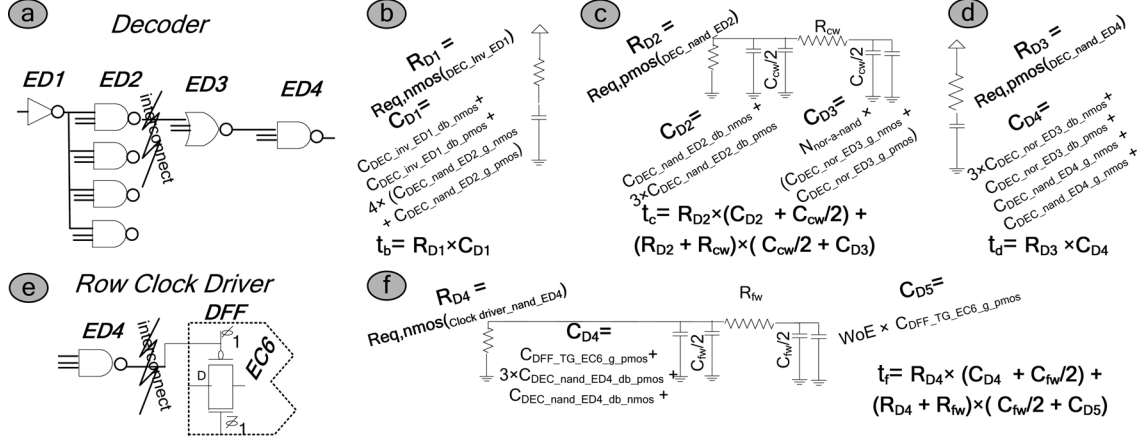 a
Decoder
ED1
ED2
ED3
ED4
interconnect
b
R_D1 =
Req,nmos(DEC_Inv_ED1)
C_D1=
C_DEC_inv_ED1_db_nmos +
C_DEC_inv_ED1_db_pmos +
4× (C_DEC_nand_ED2_g_nmos
+ C_DEC_nand_ED2_g_pmos)
t_b= R_D1×C_D1
c
R_D2 =
Req,pmos(DEC_nand_ED2)
R_cw
C_cw/2
C_cw/2
C_D2=
C_DEC_nand_ED2_db_nmos +
3×C_DEC_nand_ED2_db_pmos
C_D3=
N_nor-a-nand ×
(C_DEC_nor_ED3_g_nmos +
C_DEC_nor_ED3_g_pmos)
t_c= R_D2×(C_D2 + C_cw/2) +
(R_D2 + R_cw)×( C_cw/2 + C_D3)
d
R_D3 =
Req,pmos(DEC_nand_ED4)
C_D4=
3×C_DEC_nor_ED3_db_nmos +
C_DEC_nor_ED3_db_pmos +
C_DEC_nand_ED4_g_nmos +
C_DEC_nand_ED4_g_nmos +
t_d= R_D3 ×C_D4
e
Row Clock Driver
ED4
DFF
interconnect
1
D
EC6
1
f
R_D4 =
Req,nmos(Clock driver_nand_ED4)
C_D4=
C_DFF_TG_EC6_g_pmos +
3×C_DEC_nand_ED4_db_pmos +
C_DEC_nand_ED4_db_nmos +
R_fw
C_fw/2
C_fw/2
C_D5=
WoE × C_DFF_TG_EC6_g_pmos
t_f= R_D4× (C_D4 + C_fw/2) +
(R_D4 + R_fw)×( C_fw/2 + C_D5)